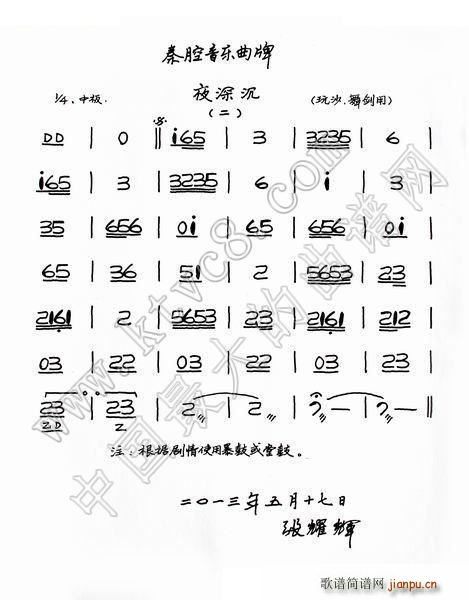 秦腔音乐曲牌
夜深沉
(二)
1/4、中板、
(玩沙、舞剑用)
DD | 0 ‖ i65 | 3 | 3235 | 6 |
i65 | 3 | 3235 | 6 | i | 3 |
35 | 656 | 0i | 65 | 656 | 0i |
65 | 36 | 51 | 2 | 5653 | 23 |
2161 | 2 | 5653 | 23 | 2161 | 212 |
03 | 22 | 03 | 22 | 03 | 23 |
23 | 23 | 2 | 2 | 2 — | 2 — ‖
ZD Z
注：根据剧情使用暴鼓或堂鼓。
二〇一三年五月十七日
张耀辉
www.ktvc8.com
中国最大的曲谱网
歌谱简谱网
jianpu.cn